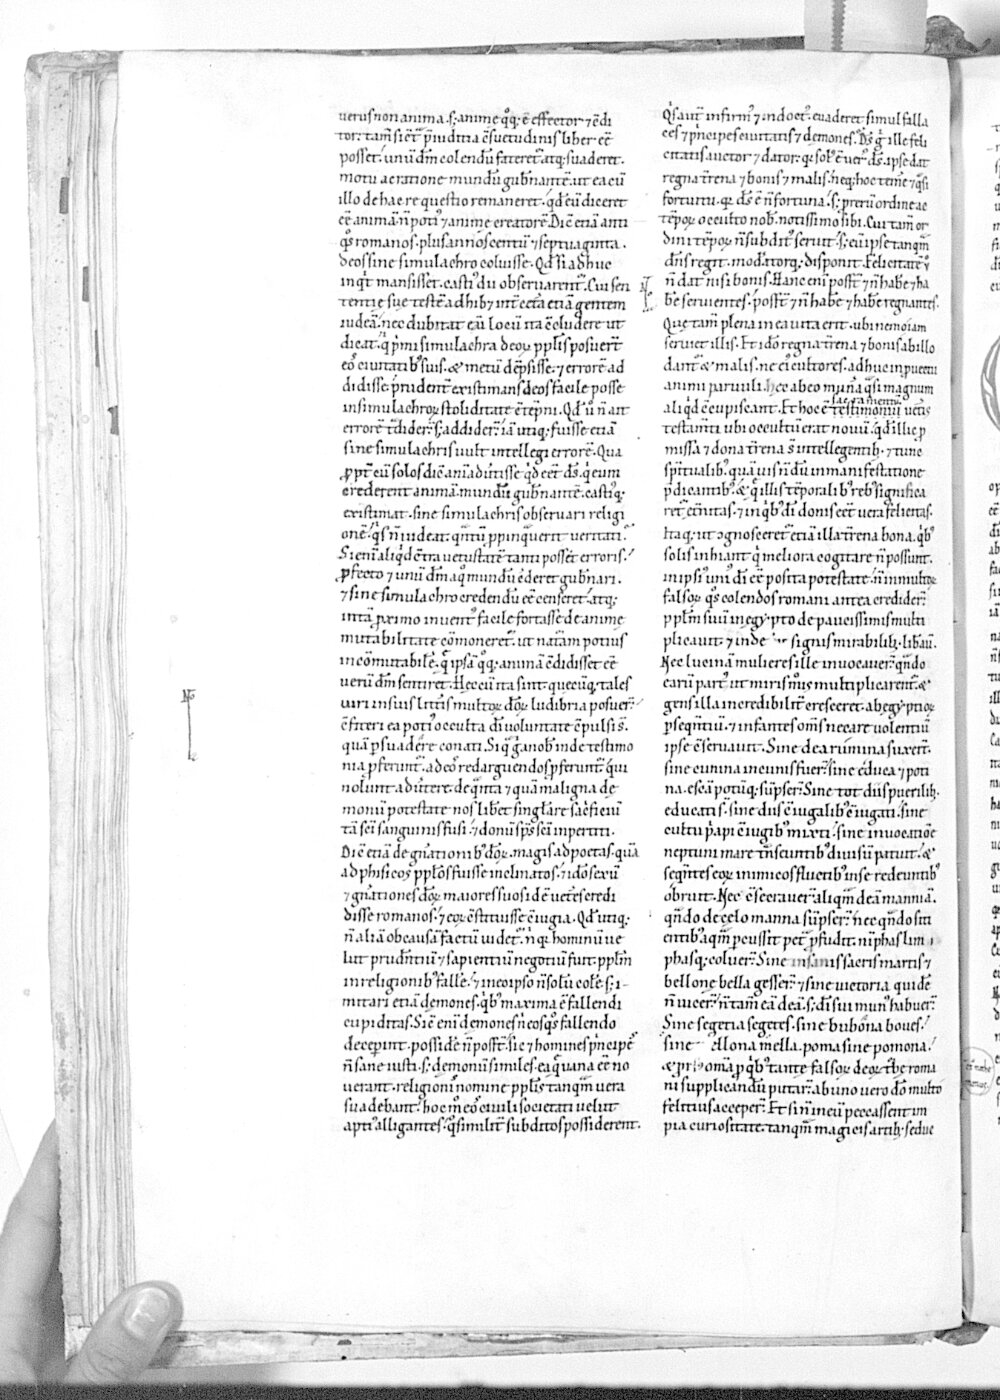 uerus non anima. s; anime q̊q; ē effector ⁊ ɔ̄di
tor. tam̄ si ēēt p̄iudicia ɔ̄suetudinis liber ēē
posset. unū dm̄ colendū fateret̄ atq; suaderet.
motu ac ratione mundū gub̄nantē. ut ea cū
illo de hac re questio remaneret. qd̓ eū diceret
ēē animā. n̄ poti᾽ ⁊ anime creatorē. Dic̄ etiā anti
q̊s romanos. plus annos centū ⁊ septuaginta.
deos sine simulachro coluisse. Qd̓ si adhuc
inq̇t mansisset. casti᾽ dii obseruarent̄. Cui sen
tentie sue testē adhib& int̄ cet̄a etiā gentem
iudeā. nec dubitat eū locū ita ɔ̄cludere ut
dicat. q̇ p̄mi simulachra deoꝝ pp̄lis posuer̄t
eos ciuitatib᾽ suis. & metū dēpsisse. ⁊ errorē ad
didisse. prudent̄ existimans deos facile posse
in simulachroꝝ stoliditate ɔ̄tēpni. Qd̓ ū n̄ ait
errorē t̄dider̄. s; addider̄. iā utiq; fuisse etiā
sine simulachris uult intellegi errorē. Qua
ꝓpt̄ cū solos dic̄ aniaduertisse qd̓ eēt ds̄. q̇ eum
crederent animā mundū gub̄nantē. castiq;
existimat. sine simulachris obseruari religi
onē. q̇s n̄ uideat. qn̄tū ꝓpinquerit ueritati.
Si eni aliqd̓ ɔ̄tra uetustatē tanti posset erroris.
ꝓfecto ⁊ unū dm̄ a q̊ mundū crederet gub̄nari.
⁊ sine simulachro credendū ēē censeret. atq;
int̄a pximo inuent᾽ facile fortasse de anime
mutabilitate cōmoneret̄. ut nat̄am potius
incōmutabilē. q̄ ipsā q̊q; animā ɔ̄didisset ēē
uerū dm̄ sentiret. Hec cū ita sint. quecūq; tales
uiri in suis litt̄is multoꝝ doꝝ ludibria posuer̄.
ɔ̄fiteri ea poti᾽ occulta di᾽ uoluntate ɔ̄pulsi s̄.
quā psuadere conati. Si q̄ g̊ a nob᾽ inde testimo
nia pferunt̄. ad eos redarguendos pferunt̄. qui
nolunt aduertere. de q̄nta ⁊ quā maligna de
monū potestate nos liberet singlare sac̄ficiū
tā sc̄i sanguinis fusi. ⁊ donū sp̄s sc̄i impertiti.
Dic̄ etiā de gn̄ationib᾽ doꝝ. magis ad poetas. quā
ad phisicos pp̄los fuisse inclinatos. ⁊ ido sexū
⁊ gn̄ationes doꝝ maiores suos id ē uet̄es credi
disse romanos. ⁊ eoꝝ ɔ̄stituisse ɔ̄iugia. Qd̓ utiq;
n̄ aliā ob causā factū uidet̄. n̄ q̇ hominū ue
lut prudn̄tiū ⁊ sapientiū negotiū fuit pp̄lm
in religionib᾽ fallē. ⁊ in eo ipso n̄ solū colē. s; i-
mitari etiā demones. q̇b᾽ maxima ē fallendi
cupiditas. Sic̄ eni demones n̄ eos q̊s fallendo
decepint. possidē n̄ posst̄. sic ⁊ homines p̄ncipē
n̄ sane iusti. s; demoniī similes. ea q̄ uana ēē no
uerant. religionis nomine pp̄lis tanq̄m uera
suadebant. hoc m̊ eos ciuili societati uelut
apti᾽ alligantes. q̊s similit̄ subditos possiderent.
Q̇s aut̄ infirm᾽ ⁊ indoct᾽ euaderet simul falla
ces ⁊ p̄ncipes ciuitatis ⁊ demones. Ds̄ g̊ ille feli
citatis auctor ⁊ dator. q̇ sol᾽ ē uer᾽ ds̄. ipse dat
regna t̄rena ⁊ bonis ⁊ malis. neq; hoc tem̄e ⁊ q̄si
fortuitu. q̇ ds̄ ē n̄ fortuna. s; p reꝝ ordine ac
tēpoꝝ occulto nob᾽. notissimo sibi. Cui tam̄ or
dini tēpoꝝ n̄ subdit᾽ seruit. s; eū ipse tanq̄m
dn̄s regit. mod̄atorq; disponit. Felicitatē ū
n̄ dat nisi bonis. Hanc eni posst̄ ⁊ n̄ habē ⁊ ha
bē seruientes. posst̄ ⁊ n̄ habē ⁊ habē regnantes.
Que tam̄ plena in ea uita erit. ubi nemo iam
seruiet illis. Et ido regna t̄rena ⁊ bonis ab illo
dant̄ & malis. ne ei᾽ cultores. adhuc in puectu
animi paruuli. hec ab eo mun̄a q̄si magnum
sacramentū
aliqd̓ ɔ̄cupiscant. Et hoc ē testimoniū uet̄is
testam̄ti. ubi occultū erat nouū. qd̓ illic p
missa ⁊ dona t̄rena s̄ intellegentib;. ⁊ tunc
sp̄itualib᾽. quāuis n̄dū in manifestatione
p̄dicantib᾽. & q̄ illis tēporalib᾽ reb᾽ significa
ret̄ et̄nitas. ⁊ in q̇b᾽ di᾽ donis eēt uera felicitas.
Itaq; ut cognosceret̄ etiā illa t̄rena bona. q̇b᾽
solis inhiant q̇ meliora cogitare n̄ possunt.
in ipsi᾽ uni᾽ di᾽ ēē posita potestate. n̄ in multoꝝ
falsoꝝ. q̊s colendos romani antea credider̄.
pp̄lm suū in egypto de paucissimis multi
plicauit. ⁊ inde signis mirabilib; lib̄auit.
Nec lucinā mulieres ille inuocauer̄. qn̄do
earū part᾽ ut miris mōis multiplicarent̄. &
gens illa incredibilit̄ cresceret. ab egyptioꝝ
p̄seqn̄tiū. ⁊ infantes om̄s necare uolentiū
ipse ɔ̄seruauit. Sine dea rumina suxert̄.
sine cunina in cunis fuer̄. sine educa ⁊ poti
na. escā potūq; sūpser̄. Sine tot diis puerilib;
educati s̄. sine diis ɔ̄iugalib᾽ ɔ̄iugati. sine
cultu p̄api ɔ̄iugib᾽ mixti. sine inuocatiōe
neptuni mare t̄nseuntib᾽ diuisū patuit. &
seqn̄tes eoꝝ inimicos fluctib᾽ in se redeuntib᾽
obruit. Nec ɔ̄secrauer̄ aliqm̄ deā manniā.
qn̄do de celo manna sūpser̄. nec qn̄do siti
entib᾽ aqm̄ pcussit pet̄ pfudit. niphas lim
phasq; coluer̄. Sine insanis sacris martis ⁊
bellone bella gesser̄. ⁊ sine uictoria quidē
n̄ uicer̄. n̄ tam̄ eā deā. s; di᾽ sui mun᾽ habuer̄.
Sine segetia segetes. sine bubona boues.
sine ellona mella. poma sine pomona.
& p̄rsꝰ om̄a p q̇b᾽ tante falsoꝝ deoꝝ t̄be roma
ni supplicandū putar̄. ab uno uero do multo
felicius acceper̄. Et si n̄ in eū peccassent im
pia curiositate. tanqm̄ magicis artib; sedue